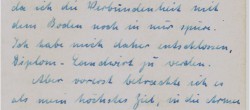 da ich die Verbundenheit mit
dem Boden noch in mir spüre.
Ich habe mich daher entschlossen,
Diplom-Landwirt zu werden.
Aber vorerst betrachte ich es
als mein höchstes Ziel, in die Armee